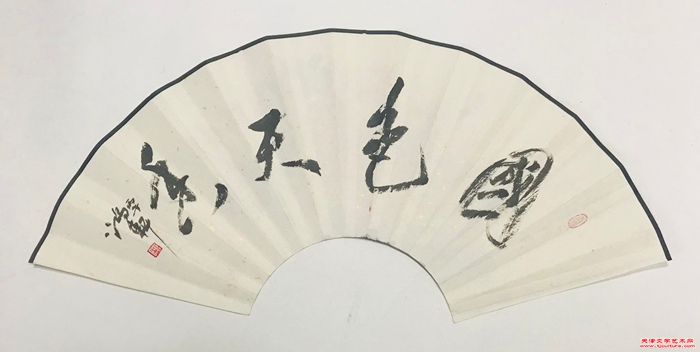 國色天香
天津文学艺术网
www.tjculture.com